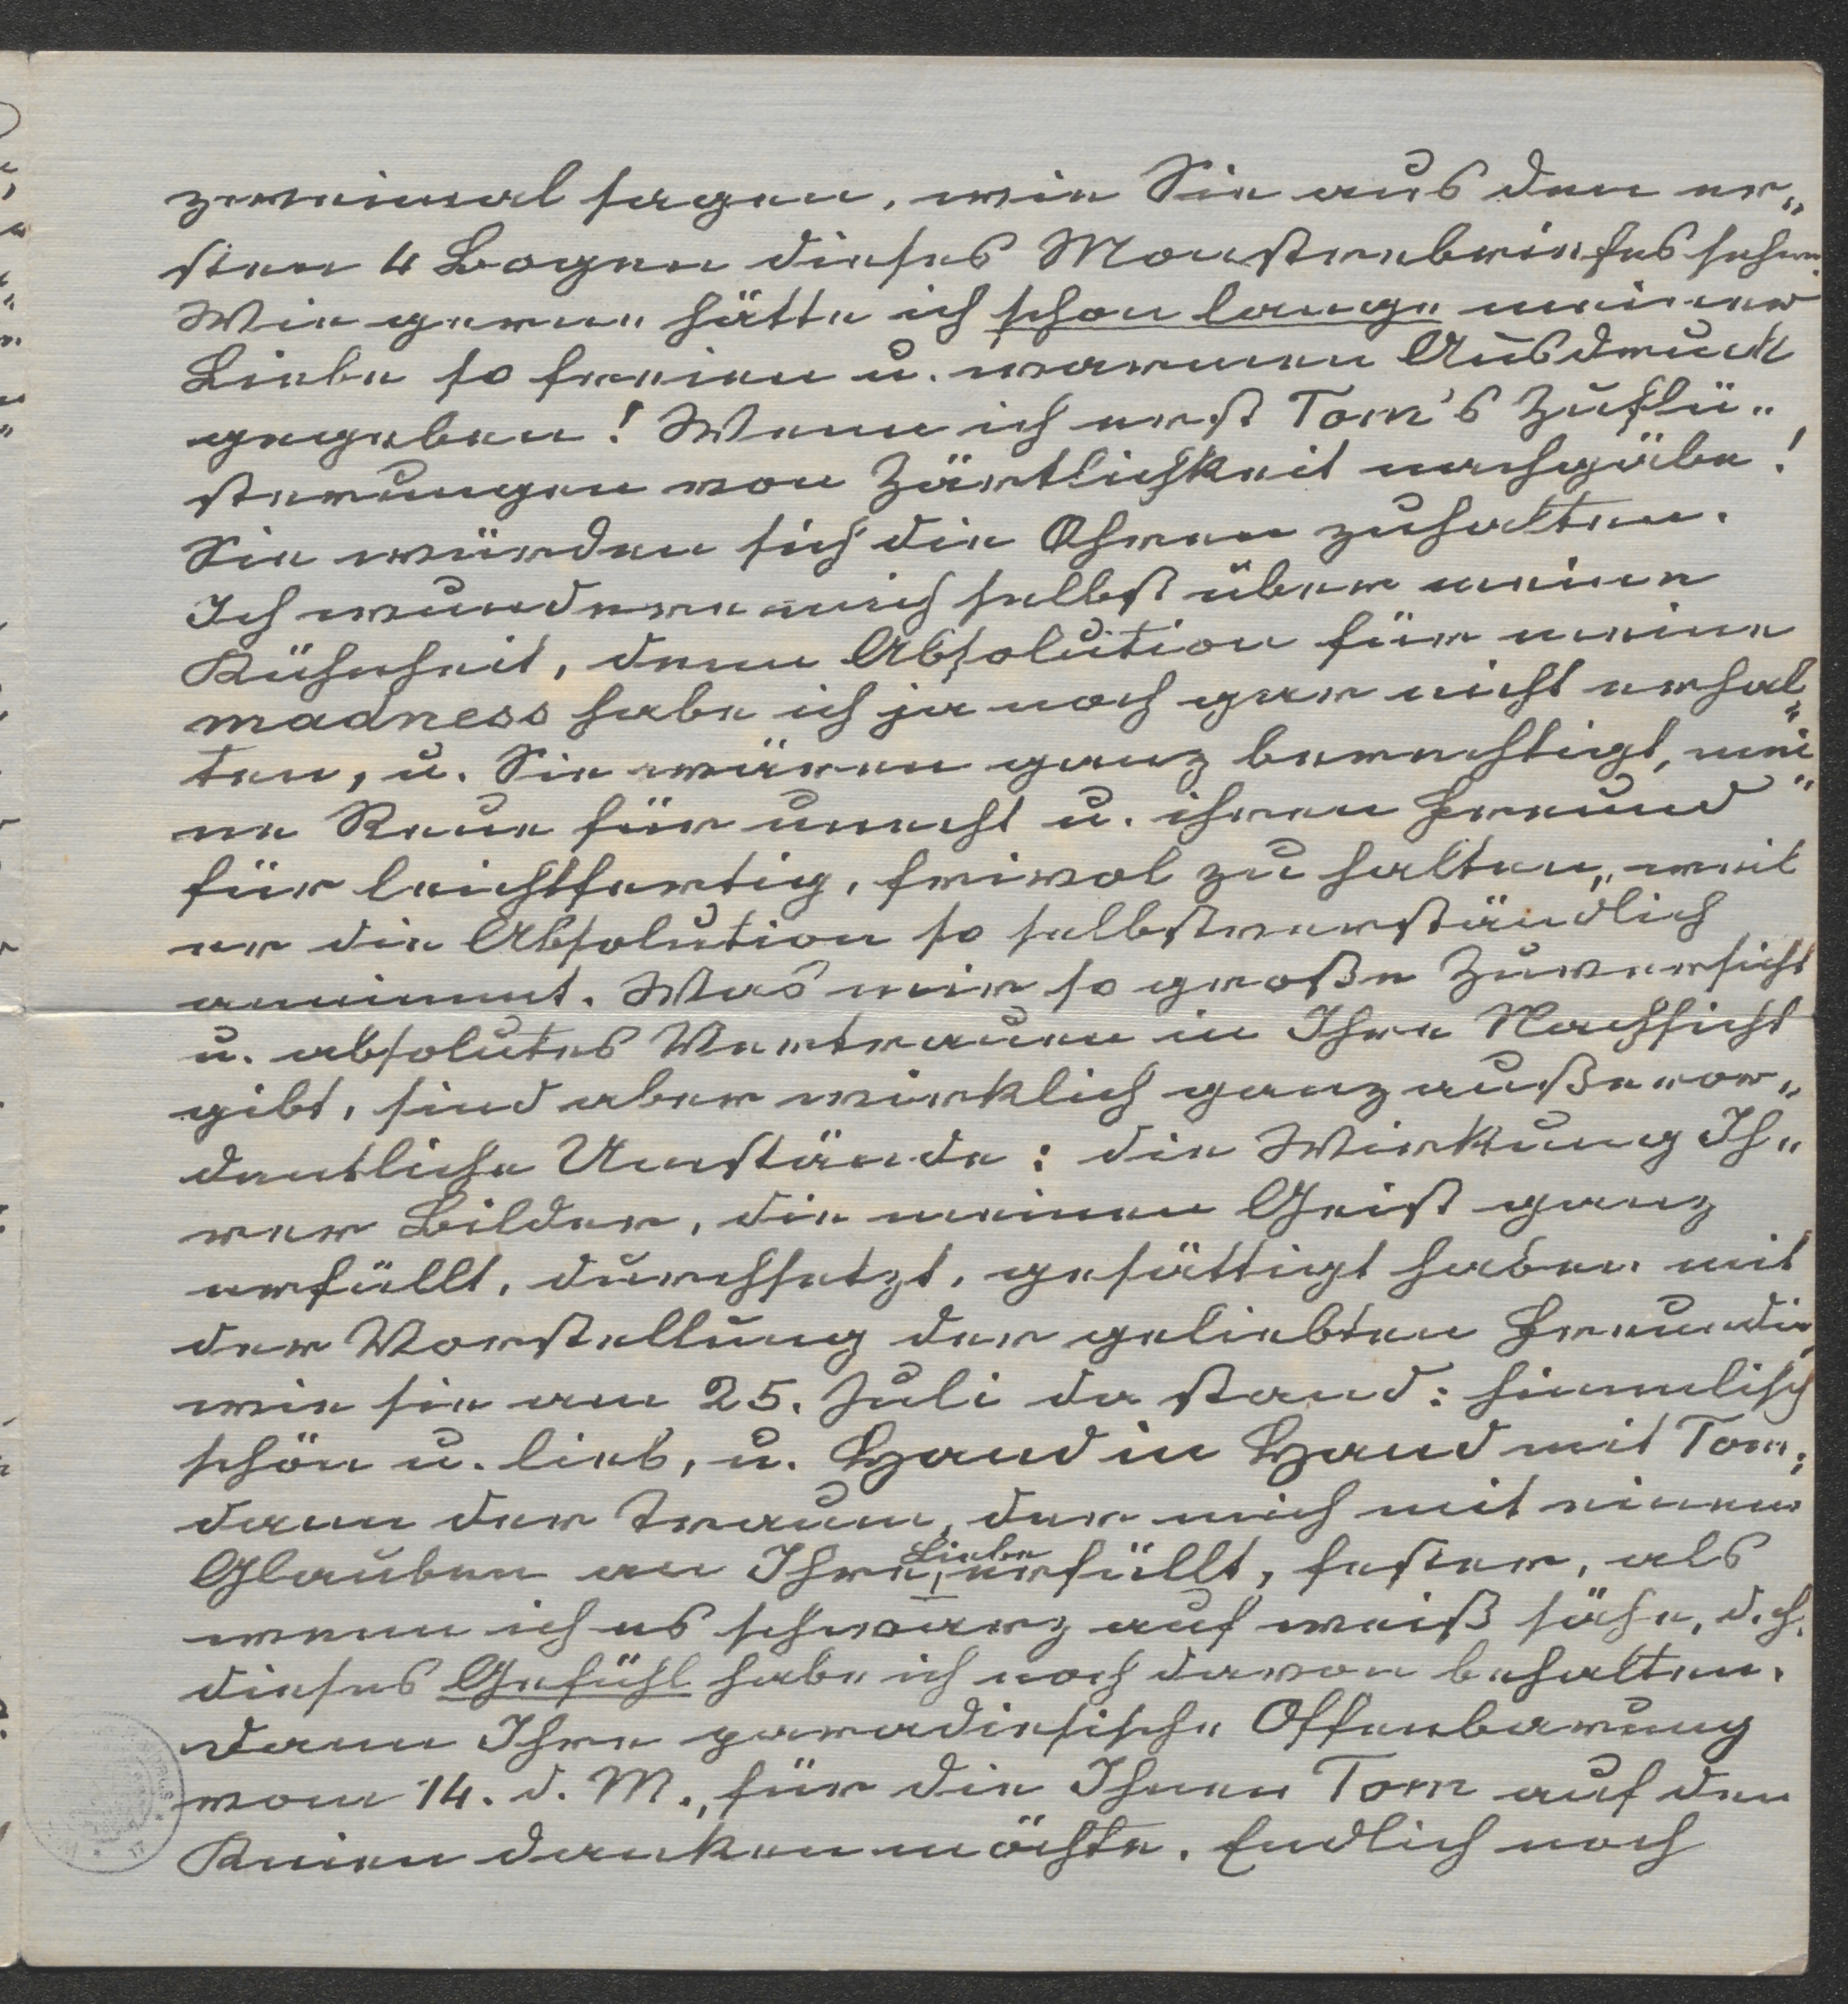 zweimal sagen, wie Sie aus den er„
sten 4 Bogen dieses Monstrebriefes sehen.
Wie gerne hätte ich schon lange meiner
Liebe so freien u. warmen Ausdruck
gegeben! Wenn ich erst Tom's Zuflü„
sterungen von Zärtlichkeit nachgäbe!
Sie würden sich die Ohren zuhalten.
Ich wundere mich selbst über meine
Kühnheit, denn Absolution für meine
madness habe ich ja noch gar nicht erhal„
ten, u. Sie wären ganz berechtigt, mei„
ne Reue für unecht u. ihren Freund
für leichtfertig, frivol zu halten, weil
er die Absolution so selbstverständlich
annimmt. Was mir so große Zuversicht
u. absolutes Vertrauen in Ihre Nachsicht
gibt, sind aber wirklich ganz außeror„
dentliche Umstände: die Wirkung Ih„
rer Bilder, die meinen Geist ganz
erfüllt, durchsetzt, gesättigt haben mit
der Vorstellung der geliebten Freundin,
wie sie am 25. Juli da stand: himmlisch
schön u. lieb, u. Hand in Hand mit Tom;
dann der Traum, der mich mit einem
Glauben an Ihre Liebe erfüllt, fester, als
wenn ich es schwarz auf weiß sähe, d. h.
dieses Gefühl habe ich noch davon behalten.
dann Ihre paradiesische Offenbarung
vom 14. d. M., für die Ihnen Tom auf den
Knien danken möchte. Endlich noch